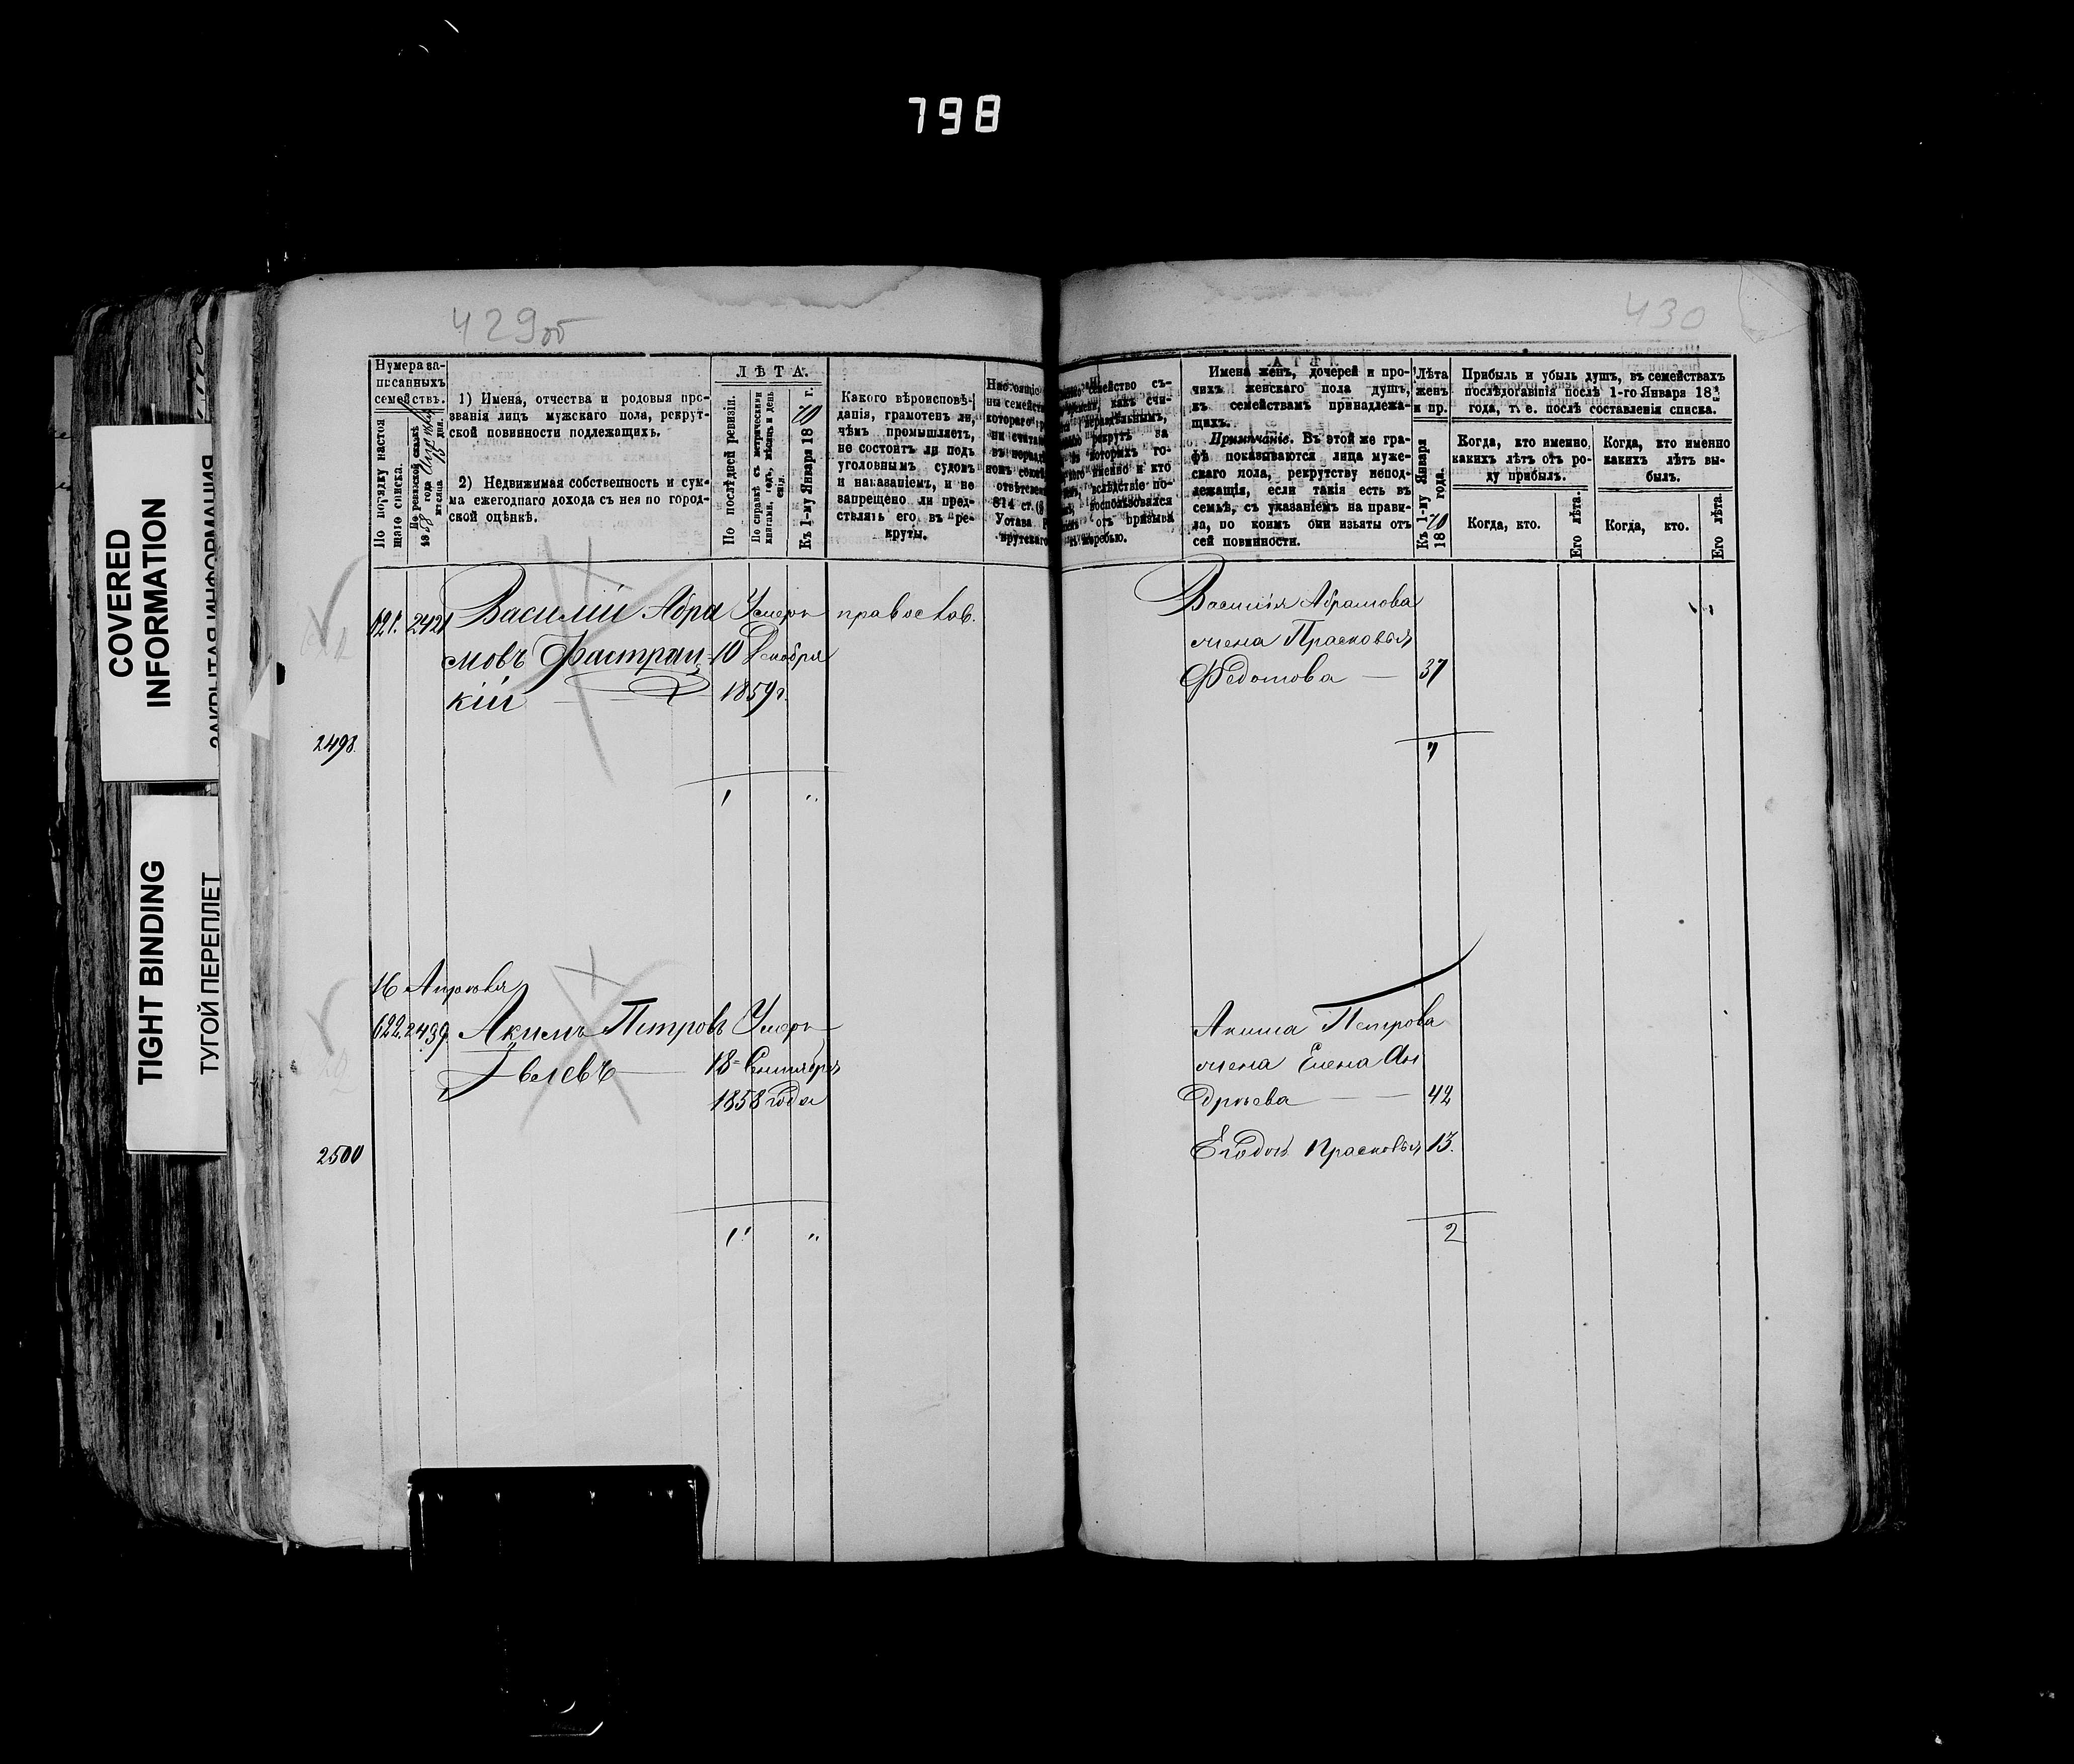 798
COVERED
INFORMATION
ЗАКРЫТАЯ ИНФОРМАЦИЯ
TIGHT BINDING
ТУГОЙ ПЕРЕПЛЕТ
429об
Нумера за-
писанныхъ
семействъ.
По порядку настоя
щаго списка.
По ревизской сказкѣ
1858 года
мѣсяца 15 дня.
1) Имена, отчества и родовыя про-
званія лицъ мужскаго пола, рекрут-
ской повинности подлежащихъ.
2) Недвижимая собственность и сум-
ма ежегоднаго дохода съ нея по город-
ской оцѣнкѣ.
ЛѢТА.
По послѣдней ревизіи.
По справкѣ съ метрическими
книгами, годъ, мѣсяцъ и день
Къ 1-му Января 1870 г.
Какого вѣроисповѣ-
данія, грамотенъ ли,
чѣмъ промышляетъ,
не состоитъ ли подъ
уголовнымъ судомъ
и наказаніемъ, и не
запрещено ли пред-
ставлять его въ ре-
круты.
621. 2421 Василій Абра Умеръ православ.
мовъ Фастрац 10 Декабря
кій 1859 г.
2498.
16 Апрѣля
622. 2439 Акимъ Петровъ Умеръ
18 Сентября
1858 года
2500
430
Имена женъ, дочерей и про-
чихъ женскаго пола душъ,
къ семействамъ принадлежа-
щихъ.
Примѣчаніе. Въ этой же гра-
фѣ показываются лица муже-
скаго пола, рекрутству непод-
лежащія, если такія есть въ
семьѣ, съ указаніемъ на прави-
ла, по коимъ они изъяты отъ
сей повинности.
Лѣта
женъ
и пр.
Къ 1-му Января
1870 года.
Прибыль и убыль душъ, въ семействахъ
послѣдовавшія послѣ 1-го Января 18
года, т. е. послѣ составленія списка.
Когда, кто именно,
какихъ лѣтъ отъ ро-
ду прибылъ.
Когда, кто именно
какихъ лѣтъ вы-
былъ.
Когда, кто.
Его лѣта.
Когда, кто.
Его лѣта.
Василія Абрамова
жена Прасковья
Федотова — 37
1
Акима Петрова
жена Елена Ан
дрѣева — 42
Прасковья 13.
2